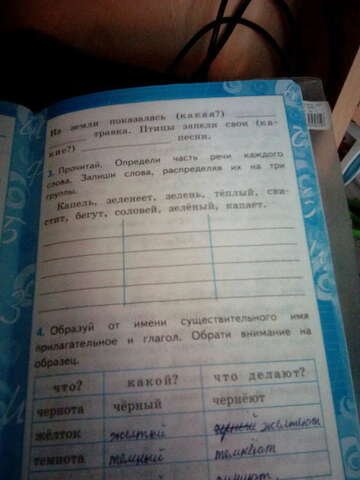 Из земли показалась (какая?)
травка. Птицы запели свои (ка-
кие?) песни.
3. Прочитай. Определи часть речи каждого
слова. Запиши слова, распределяя их на три
группы.
Капель, зеленеет, зелень, тёплый, сви-
стит, бегут, соловей, зелёный, капает.
4. Образуй от имени существительного имя
прилагательное и глагол. Обрати внимание на
образец.
что? какой? что делают?
чернота чёрный чернеют
желток желтый желтеют
темнота темный темнеют